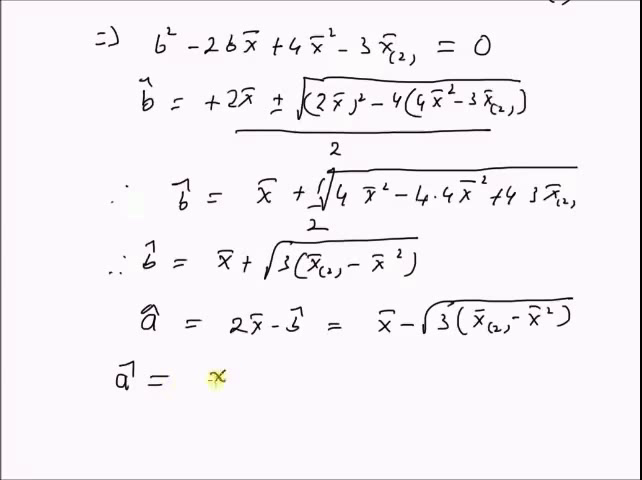 ⇒ b² - 2bx̄ + 4x̄² - 3x̄₍₂₎ = 0
b̂ = + 2x̄ ± √((2x̄)² - 4(4x̄² - 3x̄₍₂₎)) / 2
∴ b̂ = x̄ + ½√(4x̄² - 4·4x̄² + 4 3x̄₍₂₎
∴ b̂ = x̄ + √(3(x̄₍₂₎ - x̄²))
â = 2x̄ - b̂ = x̄ - √(3(x̄₍₂₎ - x̄²))
â = x